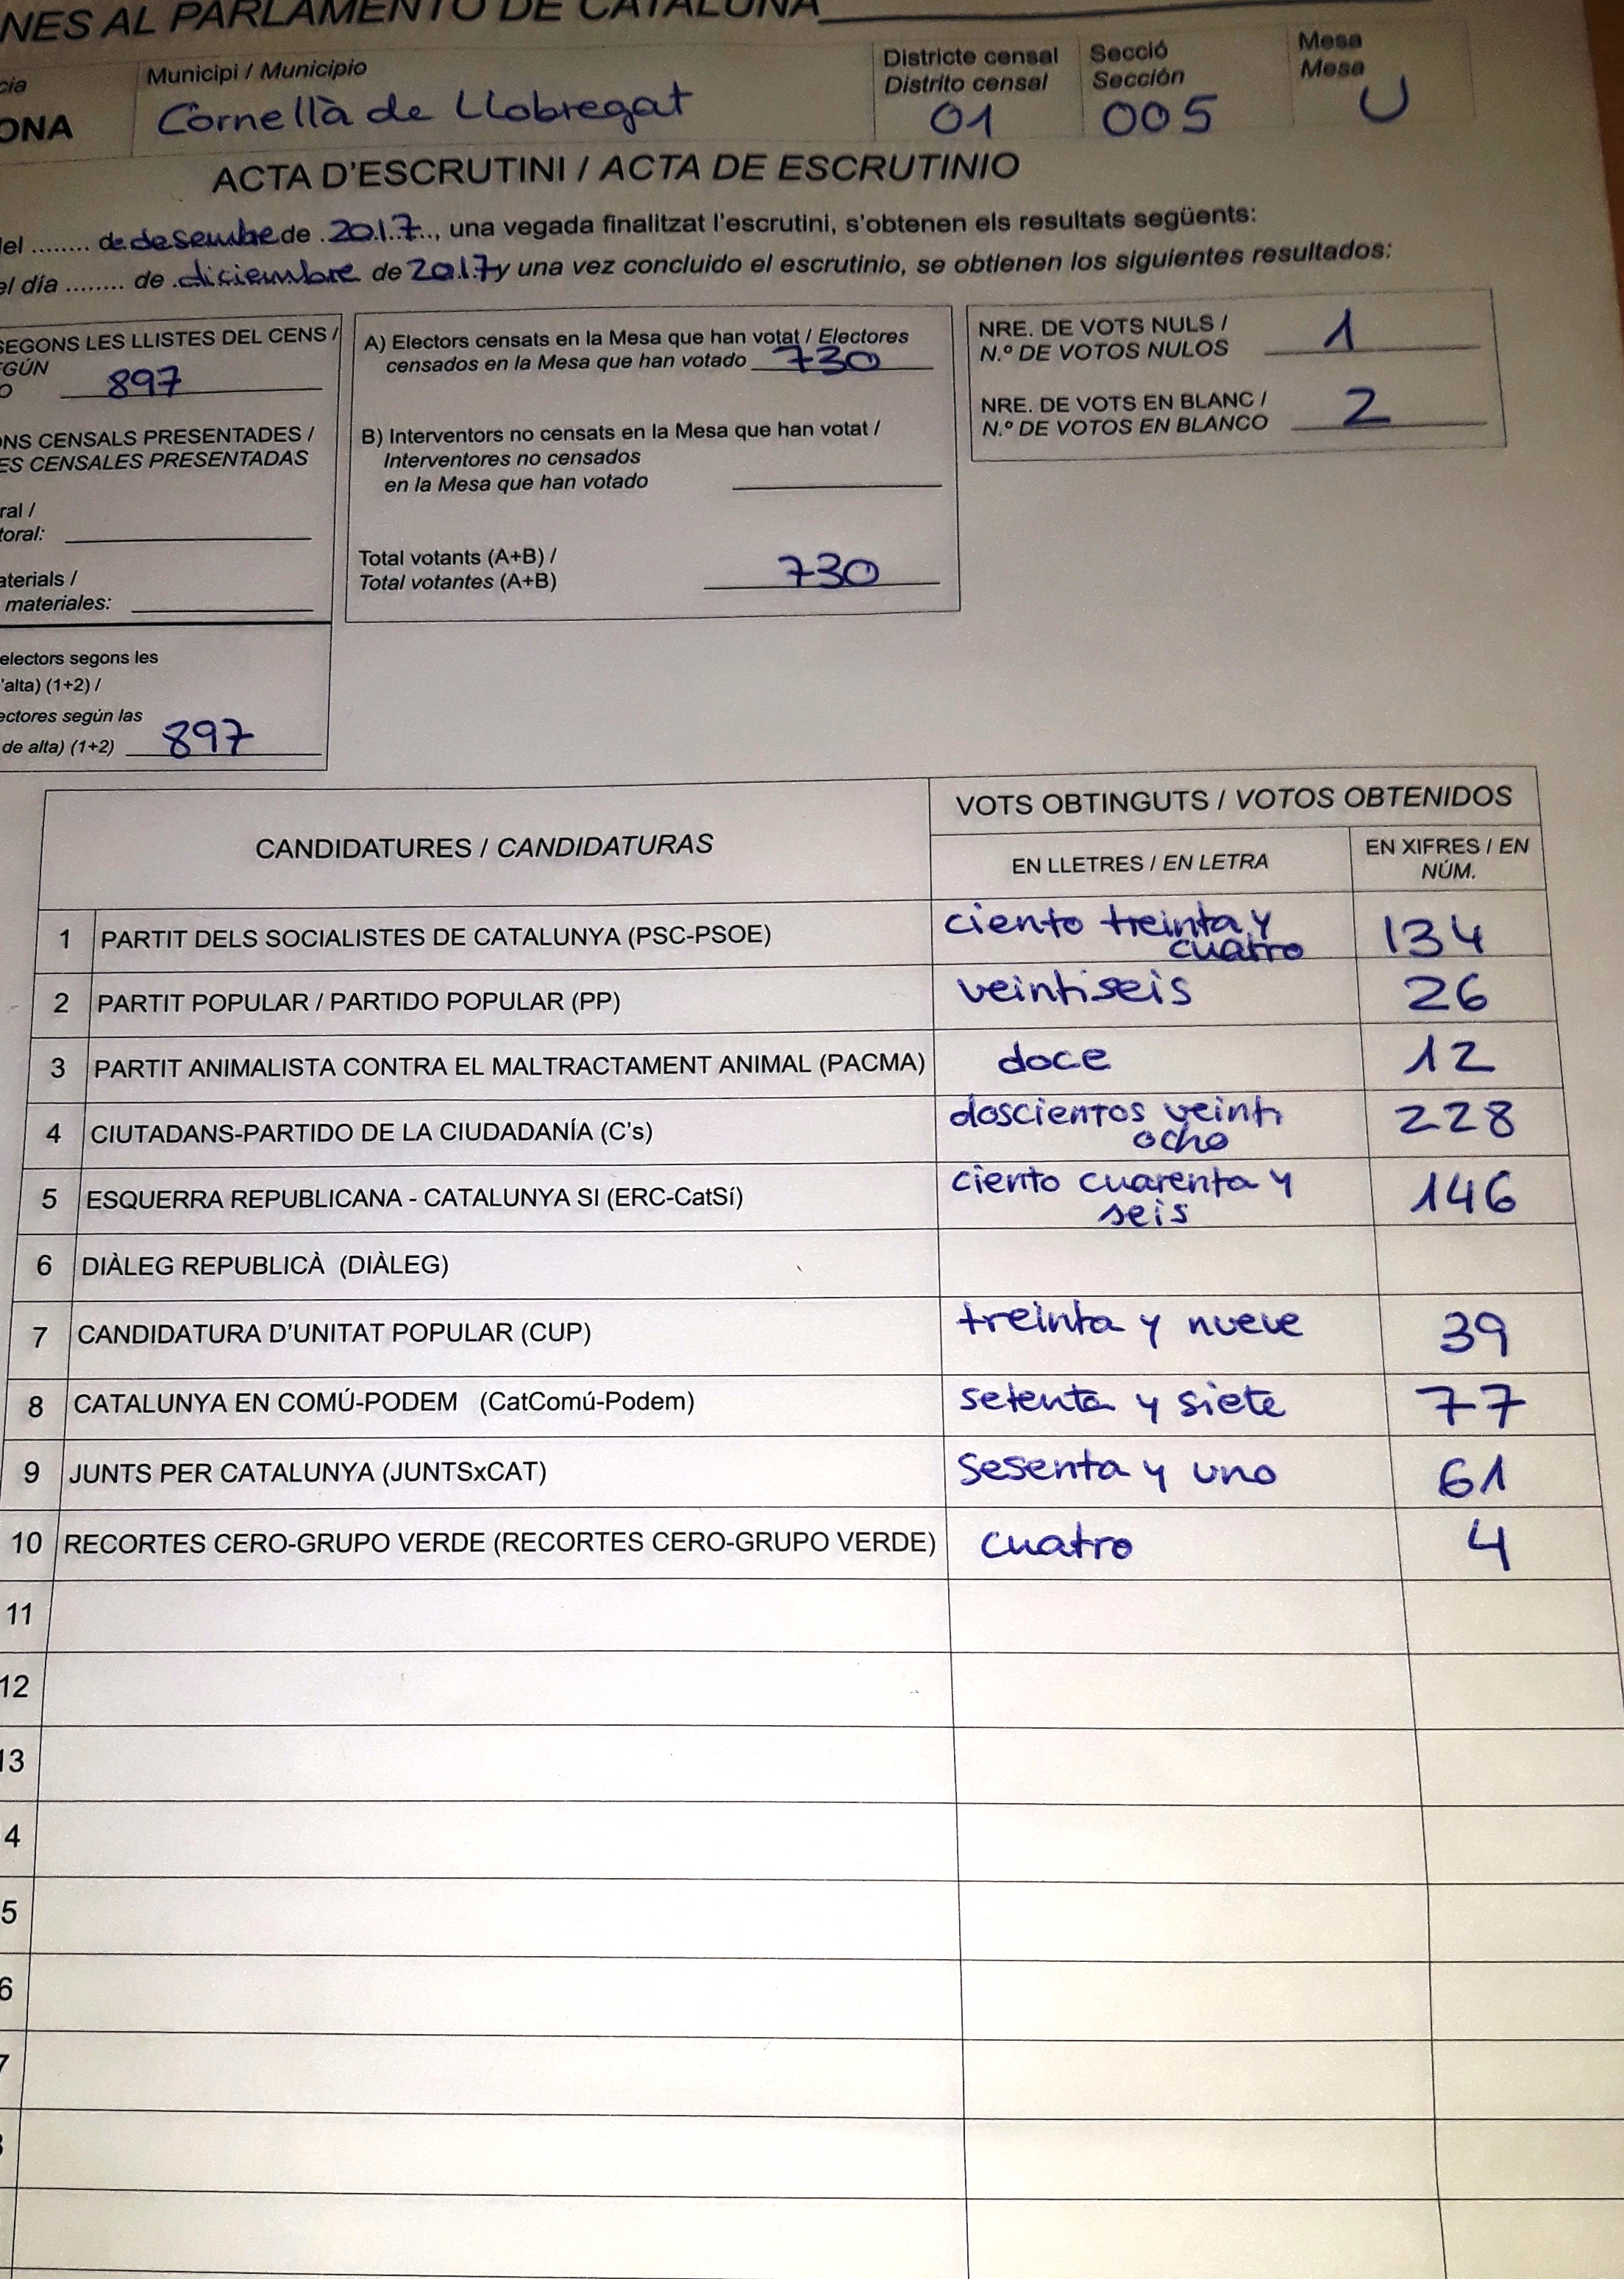 NES AL PARLAMENTO DE CATALUÑA
cia
ONA
Municipi / Municipio
Cornellà de Llobregat
Districte censal
Distrito censal
01
Secció
Sección
005
Mesa
Mesa
U
ACTA D'ESCRUTINI / ACTA DE ESCRUTINIO
del ........ de desembe de .2017.., una vegada finalitzat l'escrutini, s'obtenen els resultats següents:
el día ........ de .diciembre de 2017 y una vez concluido el escrutinio, se obtienen los siguientes resultados:
SEGONS LES LLISTES DEL CENS /
EGÚN
O 897
ONS CENSALS PRESENTADES /
ES CENSALES PRESENTADAS
ral /
toral:
aterials /
materiales:
electors segons les
'alta) (1+2) /
ectores según las
de alta) (1+2) 897
A) Electors censats en la Mesa que han votat / Electores
censados en la Mesa que han votado 730
B) Interventors no censats en la Mesa que han votat /
Interventores no censados
en la Mesa que han votado
Total votants (A+B) /
Total votantes (A+B) 730
NRE. DE VOTS NULS /
N.º DE VOTOS NULOS 1
NRE. DE VOTS EN BLANC /
N.º DE VOTOS EN BLANCO 2
CANDIDATURES / CANDIDATURAS
VOTS OBTINGUTS / VOTOS OBTENIDOS
EN LLETRES / EN LETRA
EN XIFRES / EN
NÚM.
1 PARTIT DELS SOCIALISTES DE CATALUNYA (PSC-PSOE) ciento treinta y
cuatro 134
2 PARTIT POPULAR / PARTIDO POPULAR (PP) veintiseis 26
3 PARTIT ANIMALISTA CONTRA EL MALTRACTAMENT ANIMAL (PACMA) doce 12
4 CIUTADANS-PARTIDO DE LA CIUDADANÍA (C's) doscientos veinti
ocho 228
5 ESQUERRA REPUBLICANA - CATALUNYA SI (ERC-CatSí) ciento cuarenta y
seis 146
6 DIÀLEG REPUBLICÀ (DIÀLEG)
7 CANDIDATURA D'UNITAT POPULAR (CUP) treinta y nueve 39
8 CATALUNYA EN COMÚ-PODEM (CatComú-Podem) setenta y siete 77
9 JUNTS PER CATALUNYA (JUNTSxCAT) sesenta y uno 61
10 RECORTES CERO-GRUPO VERDE (RECORTES CERO-GRUPO VERDE) cuatro 4
11
12
13
4
5
6
7